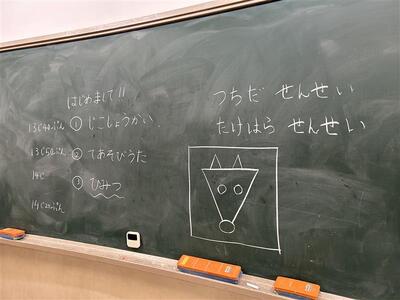 はじめまして!!
13じ40ぷん ① じこしょうかい
13じ50ぷん ② てあそびうた
14じ ③ ひみつ
つちだ せんせい
たけはら せんせい